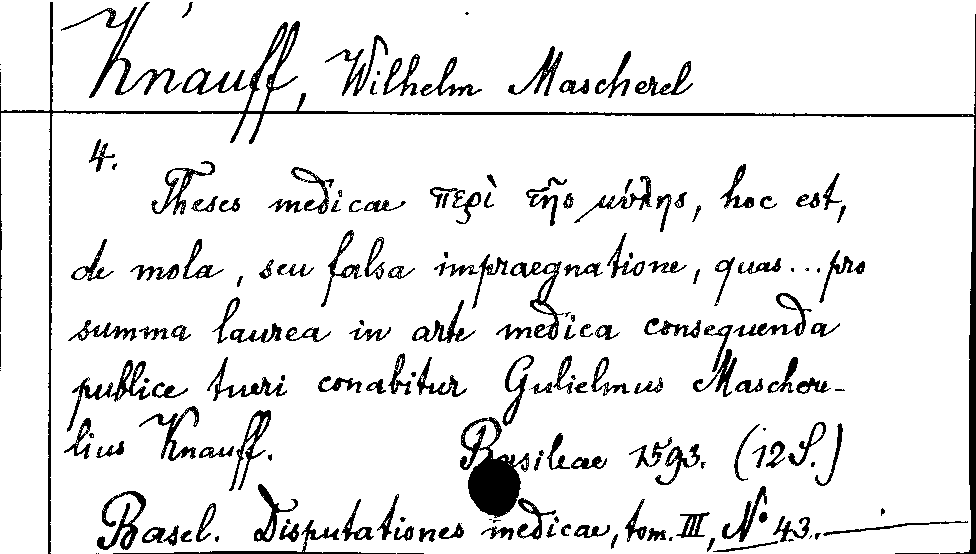 Knauff, Wilhelm Mascherel
4.
Theses medicae περὶ τῆς μύλης, hoc est,
de mola, seu falsa impraegnatione, quas...pro
summa laurea in arte medica consequenda
publice tueri conabitur Gulielmus Mascherе-
lius Knauff. Basileae 1593. (12 S.)
Basel. Disputationes medicae, tom. III, No 43.